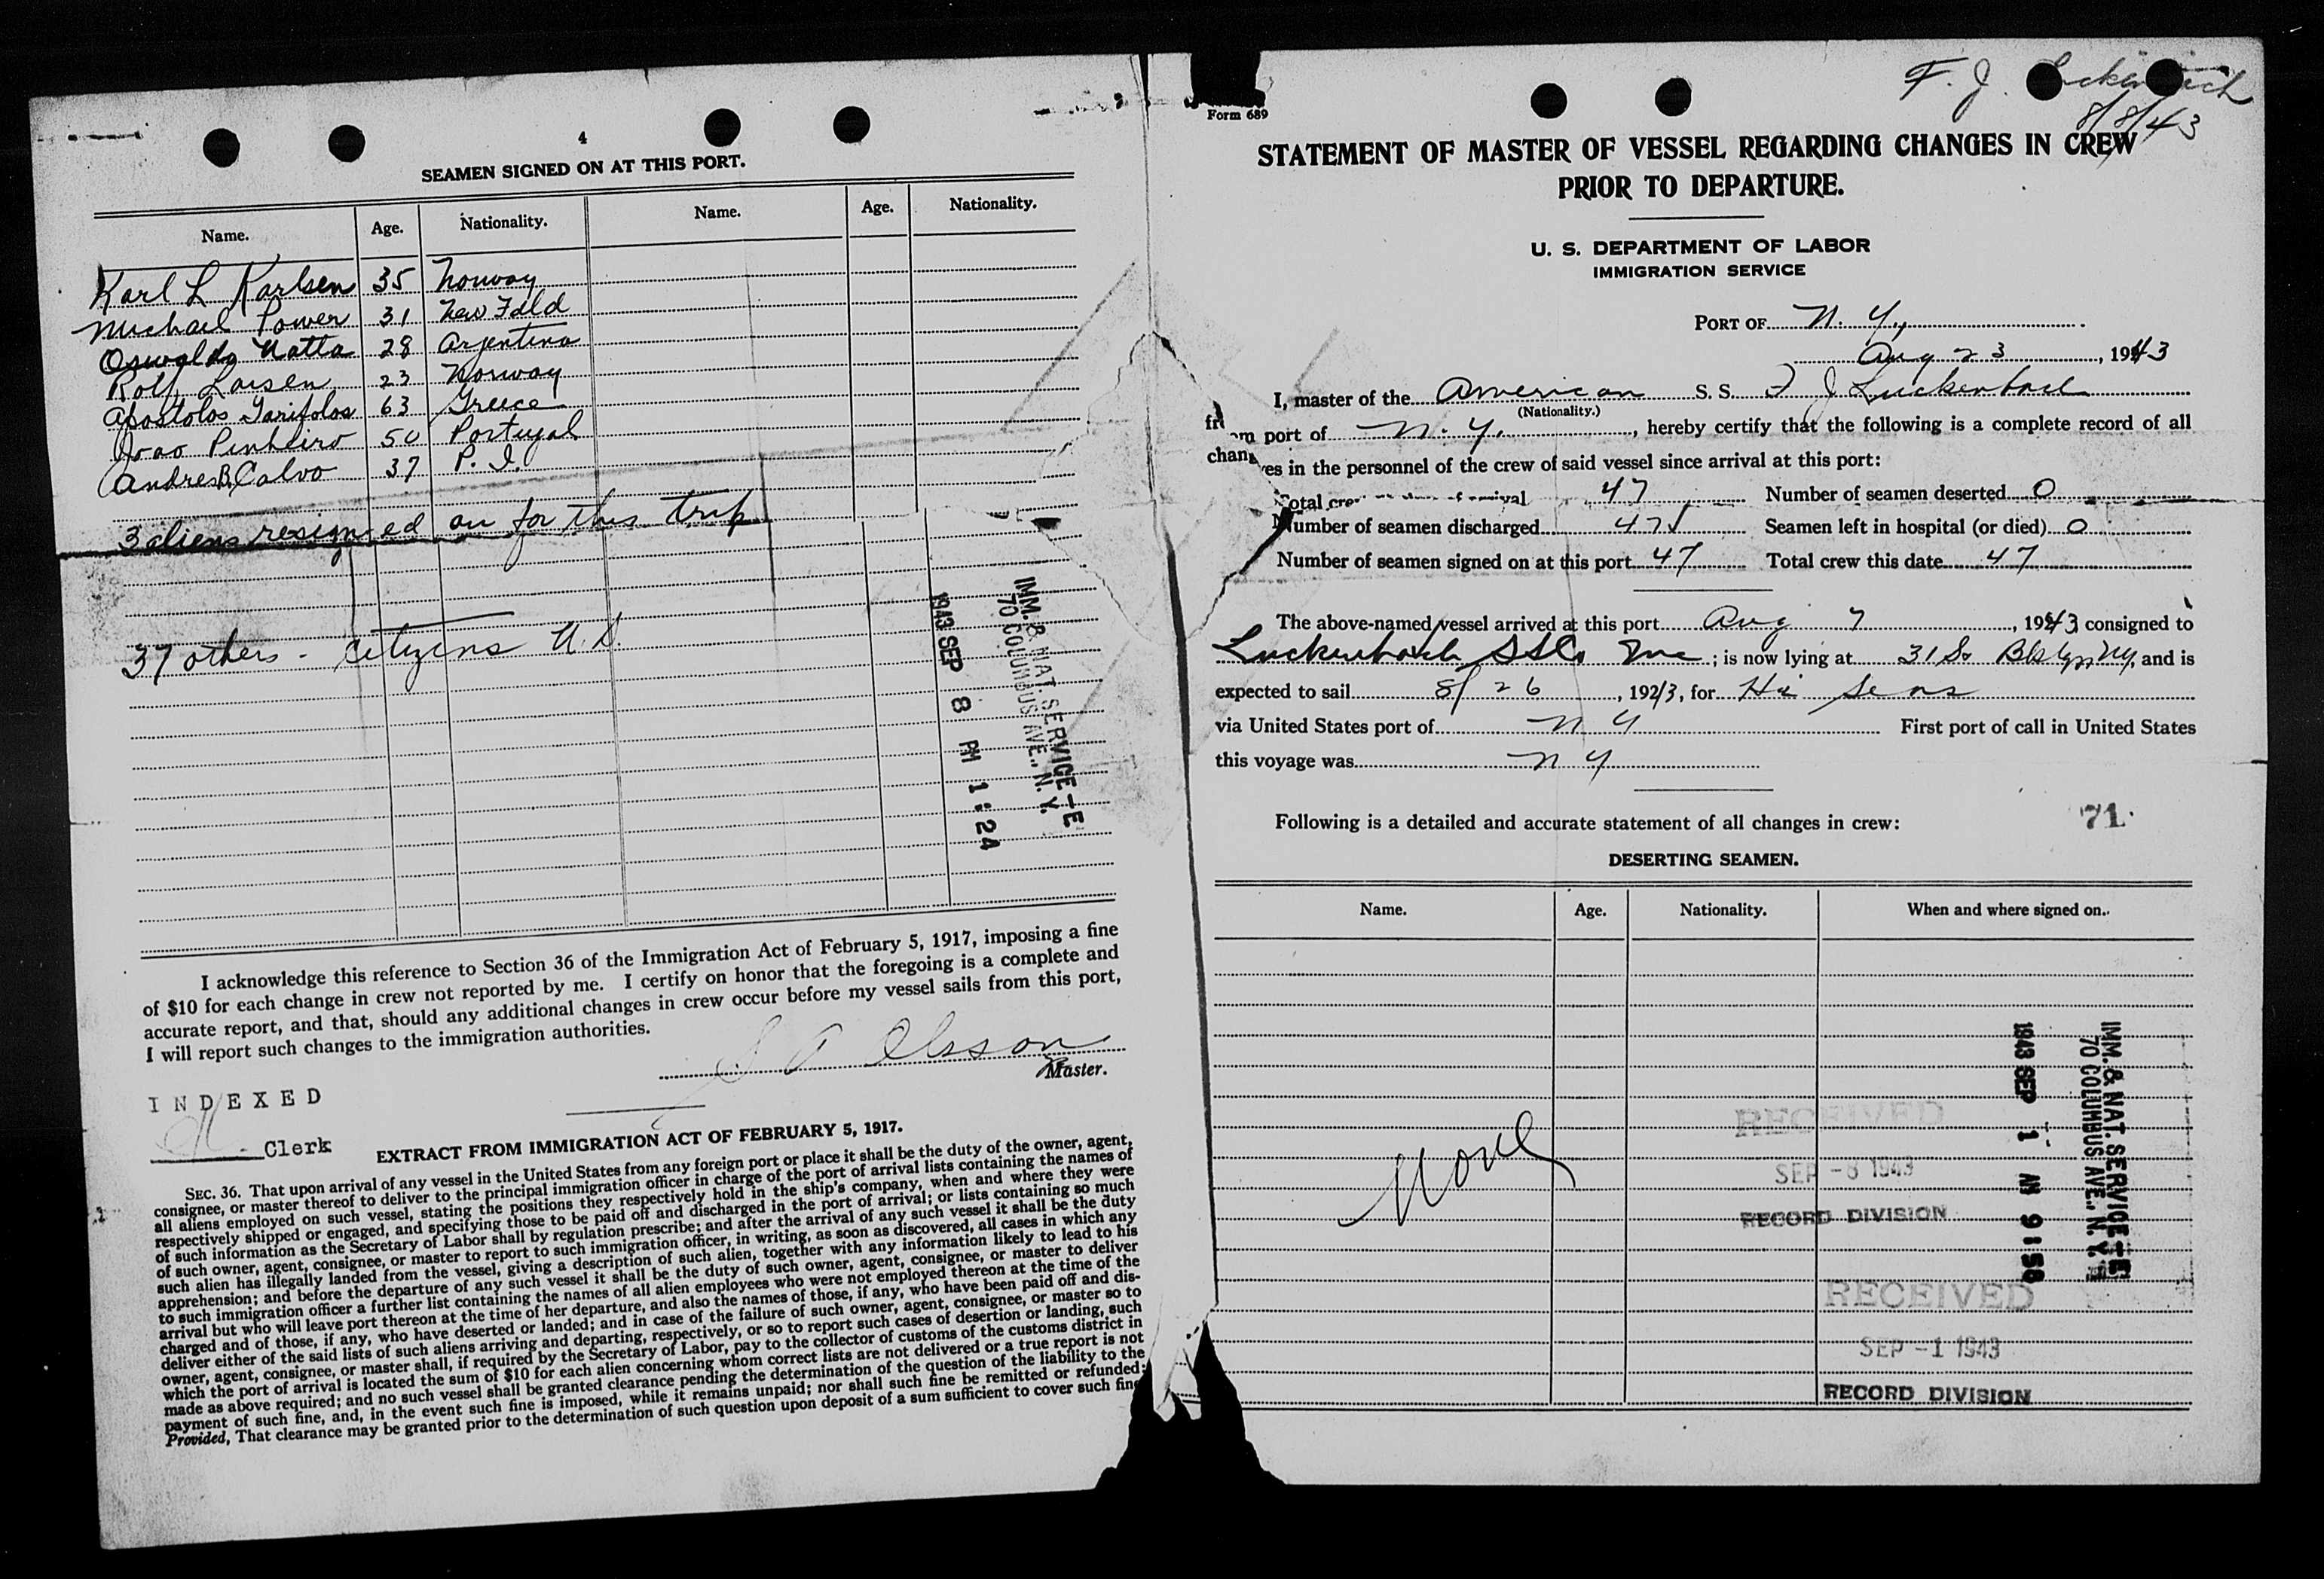 4
SEAMEN SIGNED ON AT THIS PORT.
Name. Age. Nationality. Name. Age. Nationality.
Karl L Karlsen 35 Norway
Michael Power 31 New Fdld
Oswaldo Natta 28 Argentina
Rolf Larsen 23 Norway
Apostolos 63 Greece
Joao Pinheiro 50 Portugal
Andres B. Calvo 37 P. I.
3 aliens resigned on for this trip
37 others - citizens U.S.
IMM. & NAT. SERVICE-E
70 COLUMBUS AVE., N. Y.
1943 SEP 8 PM 1:24
I acknowledge this reference to Section 36 of the Immigration Act of February 5, 1917, imposing a fine
of $10 for each change in crew not reported by me. I certify on honor that the foregoing is a complete and
accurate report, and that, should any additional changes in crew occur before my vessel sails from this port,
I will report such changes to the immigration authorities.
Olsson
Master.
INDEXED
Clerk
EXTRACT FROM IMMIGRATION ACT OF FEBRUARY 5, 1917.
SEC. 36. That upon arrival of any vessel in the United States from any foreign port or place it shall be the duty of the owner, agent,
consignee, or master thereof to deliver to the principal immigration officer in charge of the port of arrival lists containing the names of
all aliens employed on such vessel, stating the positions they respectively hold in the ship's company, when and where they were
respectively shipped or engaged, and specifying those to be paid off and discharged in the port of arrival; or lists containing so much
of such information as the Secretary of Labor shall by regulation prescribe; and after the arrival of any such vessel it shall be the duty
of such owner, agent, consignee, or master to report to such immigration officer, in writing, as soon as discovered, all cases in which any
such alien has illegally landed from the vessel, giving a description of such alien, together with any information likely to lead to his
apprehension; and before the departure of any such vessel it shall be the duty of such owner, agent, consignee, or master to deliver
to such immigration officer a further list containing the names of all alien employees who were not employed thereon at the time of the
arrival but who will leave port thereon at the time of her departure, and also the names of those, if any, who have been paid off and dis-
charged and of those, if any, who have deserted or landed; and in case of the failure of such owner, agent, consignee, or master so to
deliver either of the said lists of such aliens arriving and departing, respectively, or so to report such cases of desertion or landing, such
owner, agent, consignee, or master shall, if required by the Secretary of Labor, pay to the collector of customs of the customs district in
which the port of arrival is located the sum of $10 for each alien concerning whom correct lists are not delivered or a true report is not
made as above required; and no such vessel shall be granted clearance pending the determination of the question of the liability to the
payment of such fine, and, in the event such fine is imposed, while it remains unpaid; nor shall such fine be remitted or refunded:
Provided, That clearance may be granted prior to the determination of such question upon deposit of a sum sufficient to cover such fine
F. J.
8/8/43
Form 689
STATEMENT OF MASTER OF VESSEL REGARDING CHANGES IN CREW
PRIOR TO DEPARTURE.
U. S. DEPARTMENT OF LABOR
IMMIGRATION SERVICE
PORT OF N. Y.,
Aug 23, 1943
I, master of the American S. S. F J Luckenbach
(Nationality.)
from port of N. Y., hereby certify that the following is a complete record of all
changes in the personnel of the crew of said vessel since arrival at this port:
Total crew arrival 47 Number of seamen deserted 0
Number of seamen discharged 47 Seamen left in hospital (or died) 0
Number of seamen signed on at this port 47 Total crew this date 47
The above-named vessel arrived at this port Aug 7, 1943 consigned to
Luckenbach SSCo Inc; is now lying at 31 St Bklyn NY, and is
expected to sail 8/26, 1943, for Hi Seas
via United States port of N Y First port of call in United States
this voyage was N Y
Following is a detailed and accurate statement of all changes in crew: 71.
DESERTING SEAMEN.
Name. Age. Nationality. When and where signed on.
None
RECEIVED
SEP -8 1943
RECORD DIVISION
RECEIVED
SEP -1 1943
RECORD DIVISION
IMM. & NAT. SERVICE-E
70 COLUMBUS AVE., N. Y.
1943 SEP 1 AM 9:56